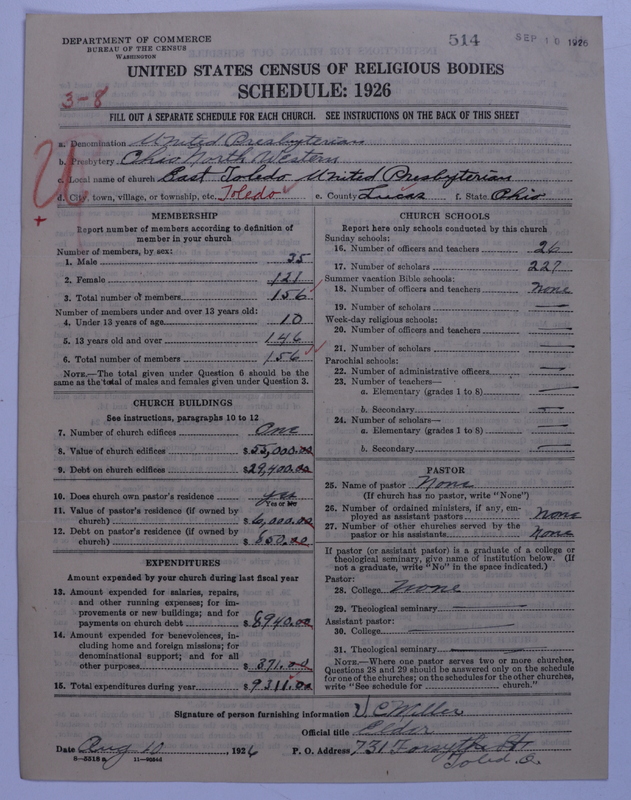 DEPARTMENT OF COMMERCE
BUREAU OF THE CENSUS
WASHINGTON
514
SEP 10 1926
UNITED STATES CENSUS OF RELIGIOUS BODIES
SCHEDULE: 1926
3-8
FILL OUT A SEPARATE SCHEDULE FOR EACH CHURCH. SEE INSTRUCTIONS ON THE BACK OF THIS SHEET
a. Denomination United Presbyterian
b. Presbytery Ohio North Western
c. Local name of church East Toledo United Presbyterian
d. City, town, village, or township, etc. Toledo e. County Lucas f. State Ohio
MEMBERSHIP
Report number of members according to definition of
member in your church
Number of members, by sex:
1. Male 35
2. Female 121
3. Total number of members 156
Number of members under and over 13 years old:
4. Under 13 years of age 10
5. 13 years old and over 146
6. Total number of members 156
NOTE.—The total given under Question 6 should be the
same as the total of males and females given under Question 3.
CHURCH BUILDINGS
See instructions, paragraphs 10 to 12
7. Number of church edifices One
8. Value of church edifices $55,000.00
9. Debt on church edifices $29,400.00
10. Does church own pastor's residence yes
Yes or No
11. Value of pastor's residence (if owned by
church) $6,000.00
12. Debt on pastor's residence (if owned by
church) $ 550.00
EXPENDITURES
Amount expended by your church during last fiscal year
13. Amount expended for salaries, repairs,
and other running expenses; for im-
provements or new buildings; and for
payments on church debt $8940.00
14. Amount expended for benevolences, in-
cluding home and foreign missions; for
denominational support; and for all
other purposes $ 371.00
15. Total expenditures during year $9311.00
CHURCH SCHOOLS
Report here only schools conducted by this church
Sunday schools:
16. Number of officers and teachers 26
17. Number of scholars 227
Summer vacation Bible schools:
18. Number of officers and teachers None
19. Number of scholars
Week-day religious schools:
20. Number of officers and teachers
21. Number of scholars
Parochial schools:
22. Number of administrative officers
23. Number of teachers—
a. Elementary (grades 1 to 8)
b. Secondary
24. Number of scholars—
a. Elementary (grades 1 to 8)
b. Secondary
PASTOR
25. Name of pastor None
(If church has no pastor, write "None")
26. Number of ordained ministers, if any, em-
ployed as assistant pastors None
27. Number of other churches served by the
pastor or his assistants None
If pastor (or assistant pastor) is a graduate of a college or
theological seminary, give name of institution below. (If
not a graduate, write "No" in the space indicated.)
Pastor:
28. College None
29. Theological seminary
Assistant pastor:
30. College
31. Theological seminary
NOTE.—Where one pastor serves two or more churches,
Questions 28 and 29 should be answered only on the schedule
for one of the churches; on the schedules for the other churches,
write "See schedule for church."
Signature of person furnishing information V C Miller
Official title Elder
Date Aug 10, 1926 P. O. Address 731 Forsythe St
Toled. O.
8-5518a 11-90846